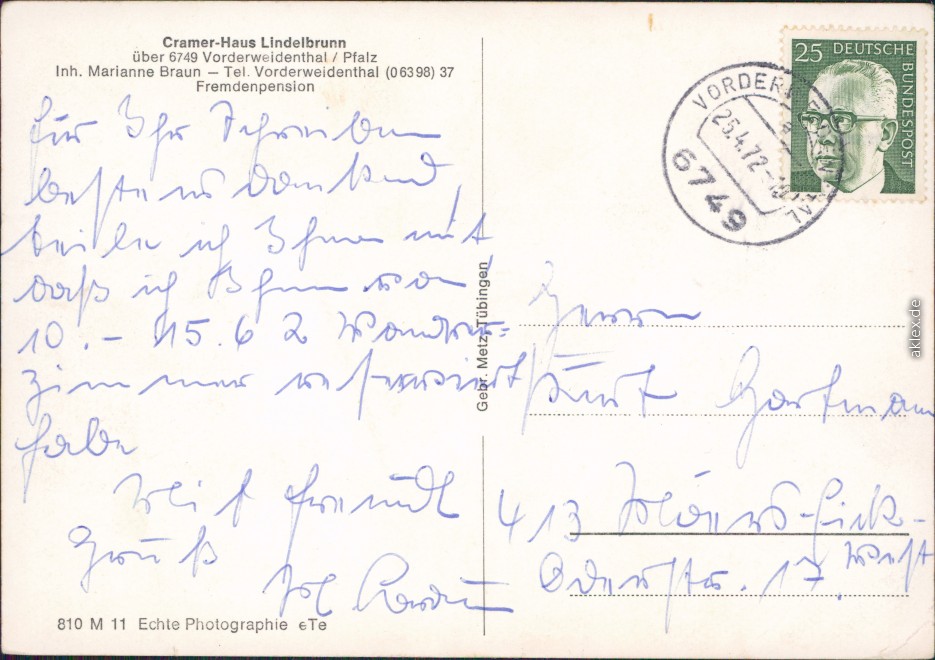 Cramer-Haus Lindelbrunn
über 6749 Vorderweidenthal / Pfalz
Inh. Marianne Braun — Tel. Vorderweidenthal (06398) 37
Fremdenpension
für Ihr Schreiben
bestens dankend,
teile ich Ihnen mit
daß ich Ihnen von
10. - 15.6 2
zimmer reserviert
habe
Mit freundl
Gruß
Gebr. Metz, Tübingen
25 DEUTSCHE BUNDESPOST
VORDERWEIDENTHAL
25.4.72
6749
Herrn
Kurt Hartmann
413 Moers-Eick-
West
Oderstr. 17
810 M 11 Echte Photographie €Te
aklex.de